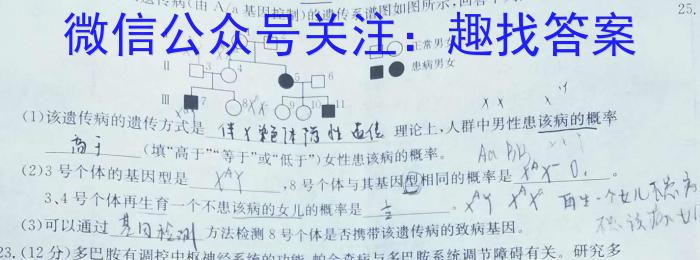 遗传病(由A/a基因控制)的遗传系谱图如图所示,回答下
25.
微信公众号关注:趣找答案
正常男女
患病男女
Ⅱ 3 4 5 6
Ⅲ 7 8 9 10 11
(1)该遗传病的遗传方式是 伴X染色体隐性遗传 理论上,人群中男性患该病的概率
高于 (填“高于”“等于”或“低于”)女性患该病的概率。 Aa BB
(2)3号个体的基因型是 XᴬY ,8号个体与其基因型相同的概率是
3、4号个体再生育一个不患该病的女儿的概率是 XᴬY XᴬXᵃ 再生一个女儿不患病
(3)可以通过 基因检测 方法检测8号个体是否携带该遗传病的致病基因。 不患该病女儿
23.(12分)多巴胺有调控中枢神经系统的功能,帕金森病与多巴胺系统调节障碍有关。研究多